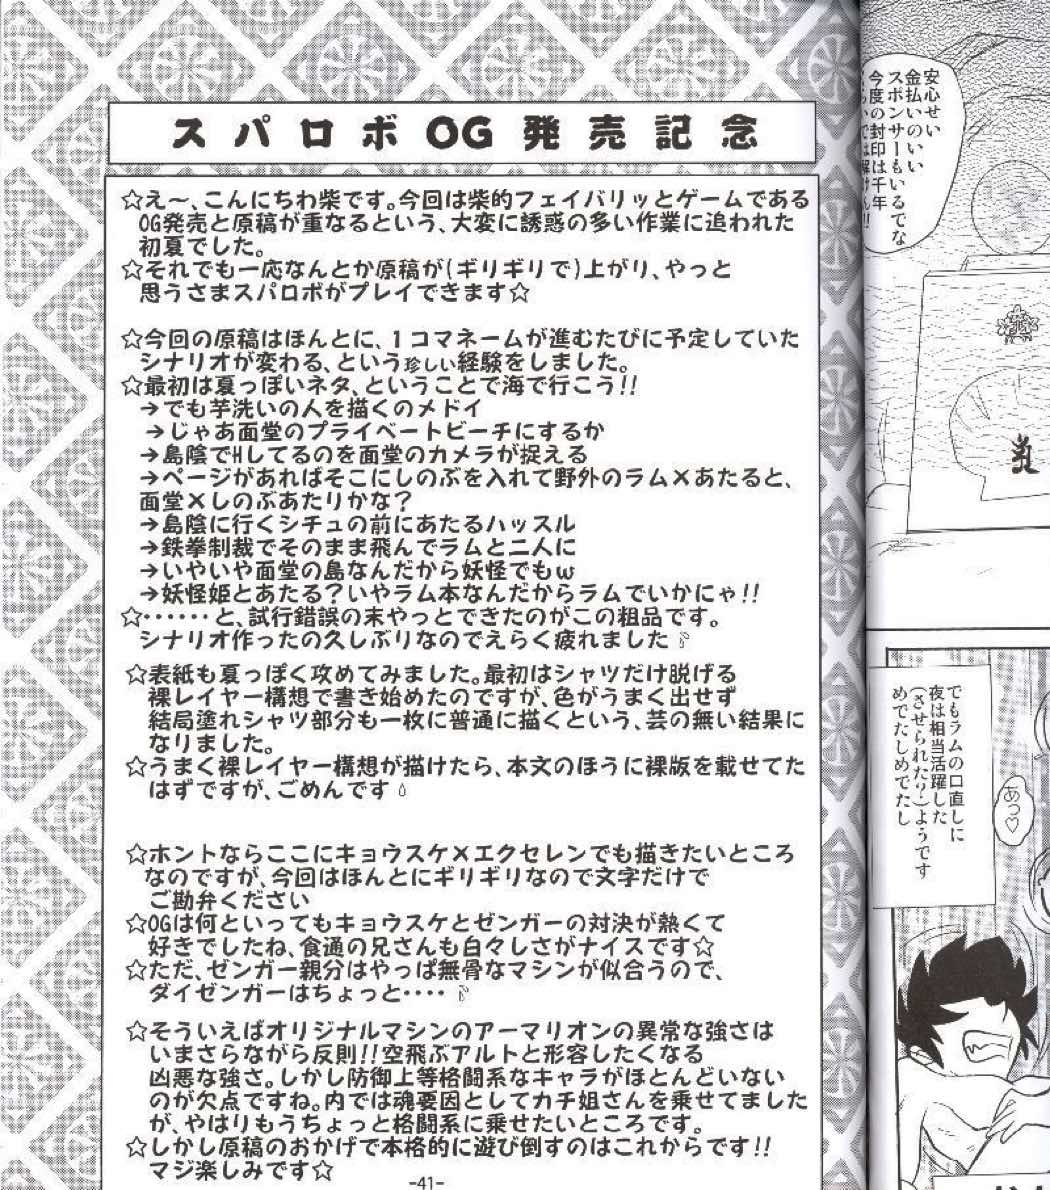 スパロボOG発売記念
☆え～、こんにちわ柴です。今回は柴的フェイバリッとゲームである
OG発売と原稿が重なるという、大変に誘惑の多い作業に追われた
初夏でした。
☆それでも一応なんとか原稿が(ギリギリで)上がり、やっと
思うさまスパロボがプレイできます☆
☆今回の原稿はほんとに、1コマネームが進むたびに予定していた
シナリオが変わる、という珍しい経験をしました。
☆最初は夏っぽいネタ、ということで海で行こう!!
→でも芋洗いの人を描くのメドイ
→じゃあ面堂のプライベートビーチにするか
→島陰でHしてるのを面堂のカメラが捉える
→ページがあればそこにしのぶを入れて野外のラム×あたると、
面堂×しのぶあたりかな？
→島陰に行くシチュの前にあたるハッスル
→鉄拳制裁でそのまま飛んでラムと二人に
→いやいや面堂の島なんだから妖怪でもω
→妖怪姫とあたる？いやラム本なんだからラムでいかにゃ!!
☆‥‥‥と、試行錯誤の末やっとできたのがこの粗品です。
シナリオ作ったの久しぶりなのでえらく疲れました
☆表紙も夏っぽく攻めてみました。最初はシャツだけ脱げる
裸レイヤー構想で書き始めたのですが、色がうまく出せず
結局塗れシャツ部分も一枚に普通に描くという、芸の無い結果に
なりました。
☆うまく裸レイヤー構想が描けたら、本文のほうに裸版を載せてた
はずですが、ごめんです
☆ホントならここにキョウスケ×エクセレンでも描きたいところ
なのですが、今回はほんとにギリギリなので文字だけで
ご勘弁ください
☆OGは何といってもキョウスケとゼンガーの対決が熱くて
好きでしたね、食通の兄さんも白々しさがナイスです☆
☆ただ、ゼンガー親分はやっぱ無骨なマシンが似合うので、
ダイゼンガーはちょっと‥‥
☆そういえばオリジナルマシンのアーマリオンの異常な強さは
いまさらながら反則!!空飛ぶアルトと形容したくなる
凶悪な強さ。しかし防御上等格闘系なキャラがほとんどいない
のが欠点ですね。内では魂要因としてカチ姐さんを乗せてました
が、やはりもうちょっと格闘系に乗せたいところです。
☆しかし原稿のおかげで本格的に遊び倒すのはこれからです!!
マジ楽しみです☆
-41-
安心せい
金払いのいい
スポンサーもいるでな
今度の封印は千年
でもラムの口直しに
夜は相当活躍した
(させられた?)ようです
めでたしめでたし
あっ♡